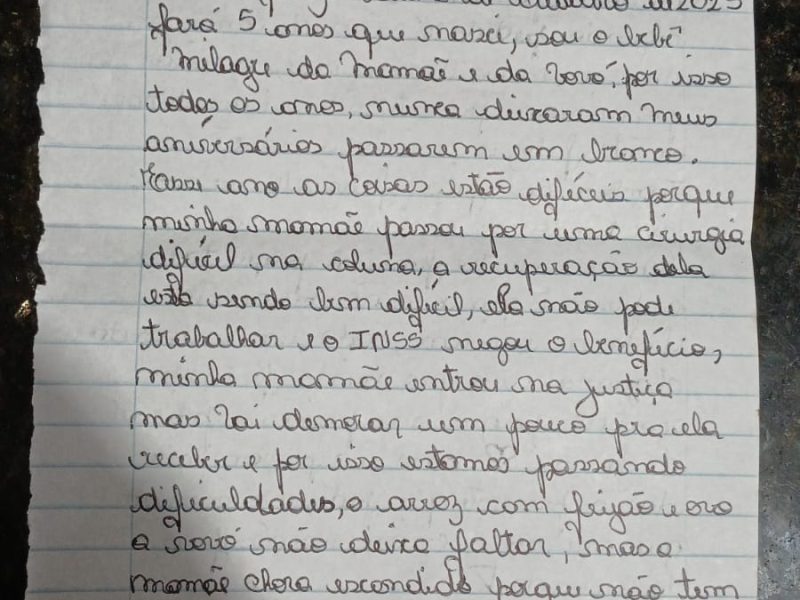 de 2023
fará 5 anos que nasci, sou o bebê
milagre da mamãe e da vovó, por isso
todos os anos, nunca deixaram meus
aniversários passarem em branco.
ano as coisas estão difíceis porque
minha mamãe passou por uma cirurgia
difícil na coluna, a recuperação dela
está sendo bem difícil, ela não pode
trabalhar e o INSS negou o benefício,
minha mamãe entrou na justiça
mas vai demorar um pouco pra ela
receber e por isso estamos passando
dificuldades, o arroz com feijão e ovo
a vovó não deixa faltar, mas a
mamãe chora escondido porque não tem